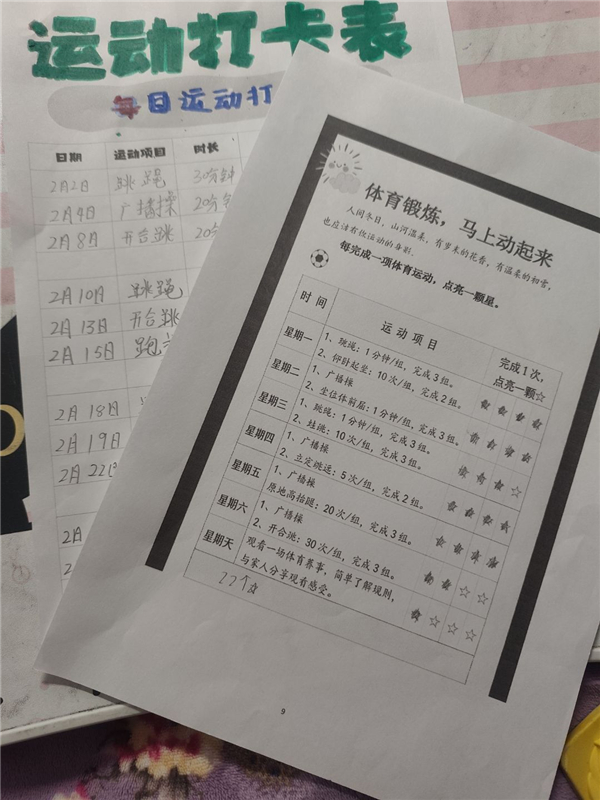 运动打卡表
每日运动打
日期 运动项目 时长
2月2日 跳绳 30分钟
2月4日 广播操 20分
2月8日 开合跳 20
2月10日 跳绳
2月13日 开合跳
2月15日 跑
2月18日
2月19日
2月22日
2月
2
体育锻炼，马上动起来
人间冬日，山河温柔，有萝木的花香，有温柔的初雪，
也应该有你运动的身影。
每完成一项体育运动，点亮一颗星。
时间 运动项目 完成1次，
点亮一颗☆
星期一 1、跳绳：1分钟/组，完成3组。
2、仰卧起坐：10次/组，完成2组。
星期二 1、广播操
2、坐位体前屈：1分钟/组，完成3组。
星期三 1、跳绳：1分钟/组，完成3组。
2、蛙跳：10次/组，完成3组。
星期四 1、广播操
2、立定跳远：5次/组，完成2组。
星期五 1、广播操
原地高抬腿：20次/组，完成3组。
星期六 1、广播操
2、开合跳：30次/组，完成3组。
星期天 观看一场体育赛事，简单了解规则，
与家人分享观看感受。
22个☆
9